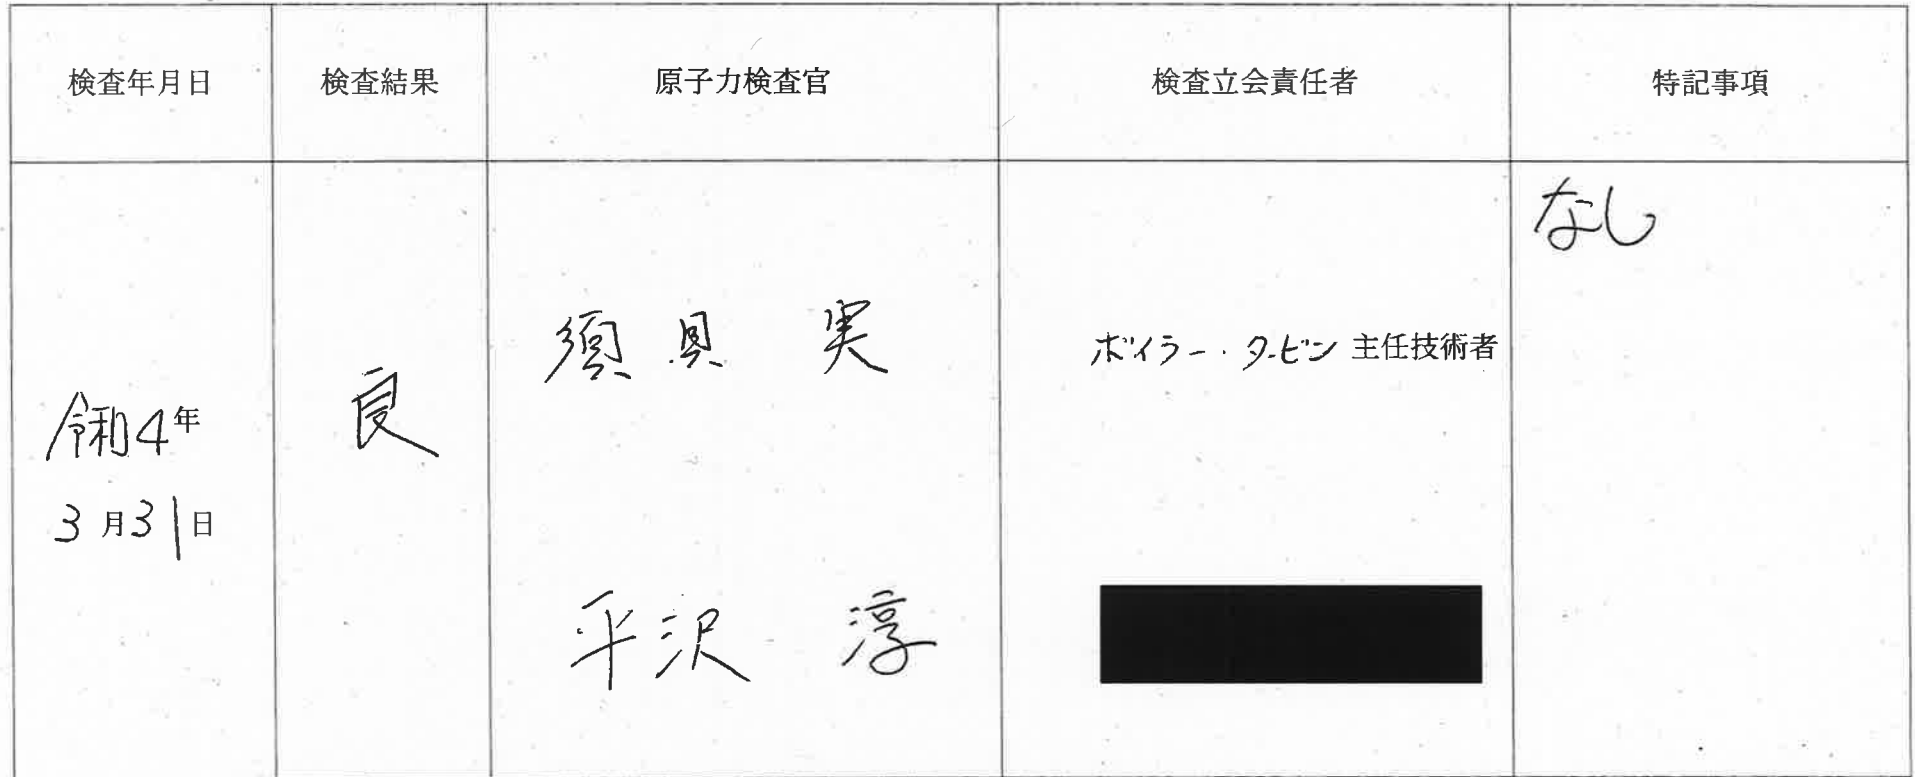 検査年月日 検査結果 原子力検査官 検査立会責任者 特記事項
令和4年
3月31日
良
須貝 実
平沢 淳
ボイラー・タービン 主任技術者
なし